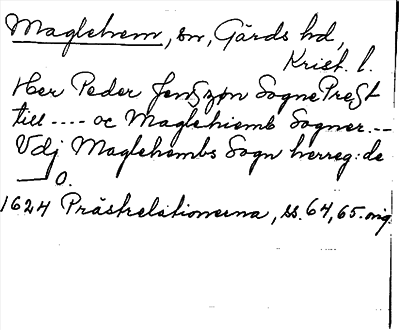 Maglehem, sn, Gärds hd,
Krist. l.
Her Peder Jenszøn Sogne Prest
till ---- oc Maglehiemb Sogner. --
Vdj Maglehembs Sogn herreg: de
— 0.
1624 Prästrelationerna, ss. 64, 65. orig.